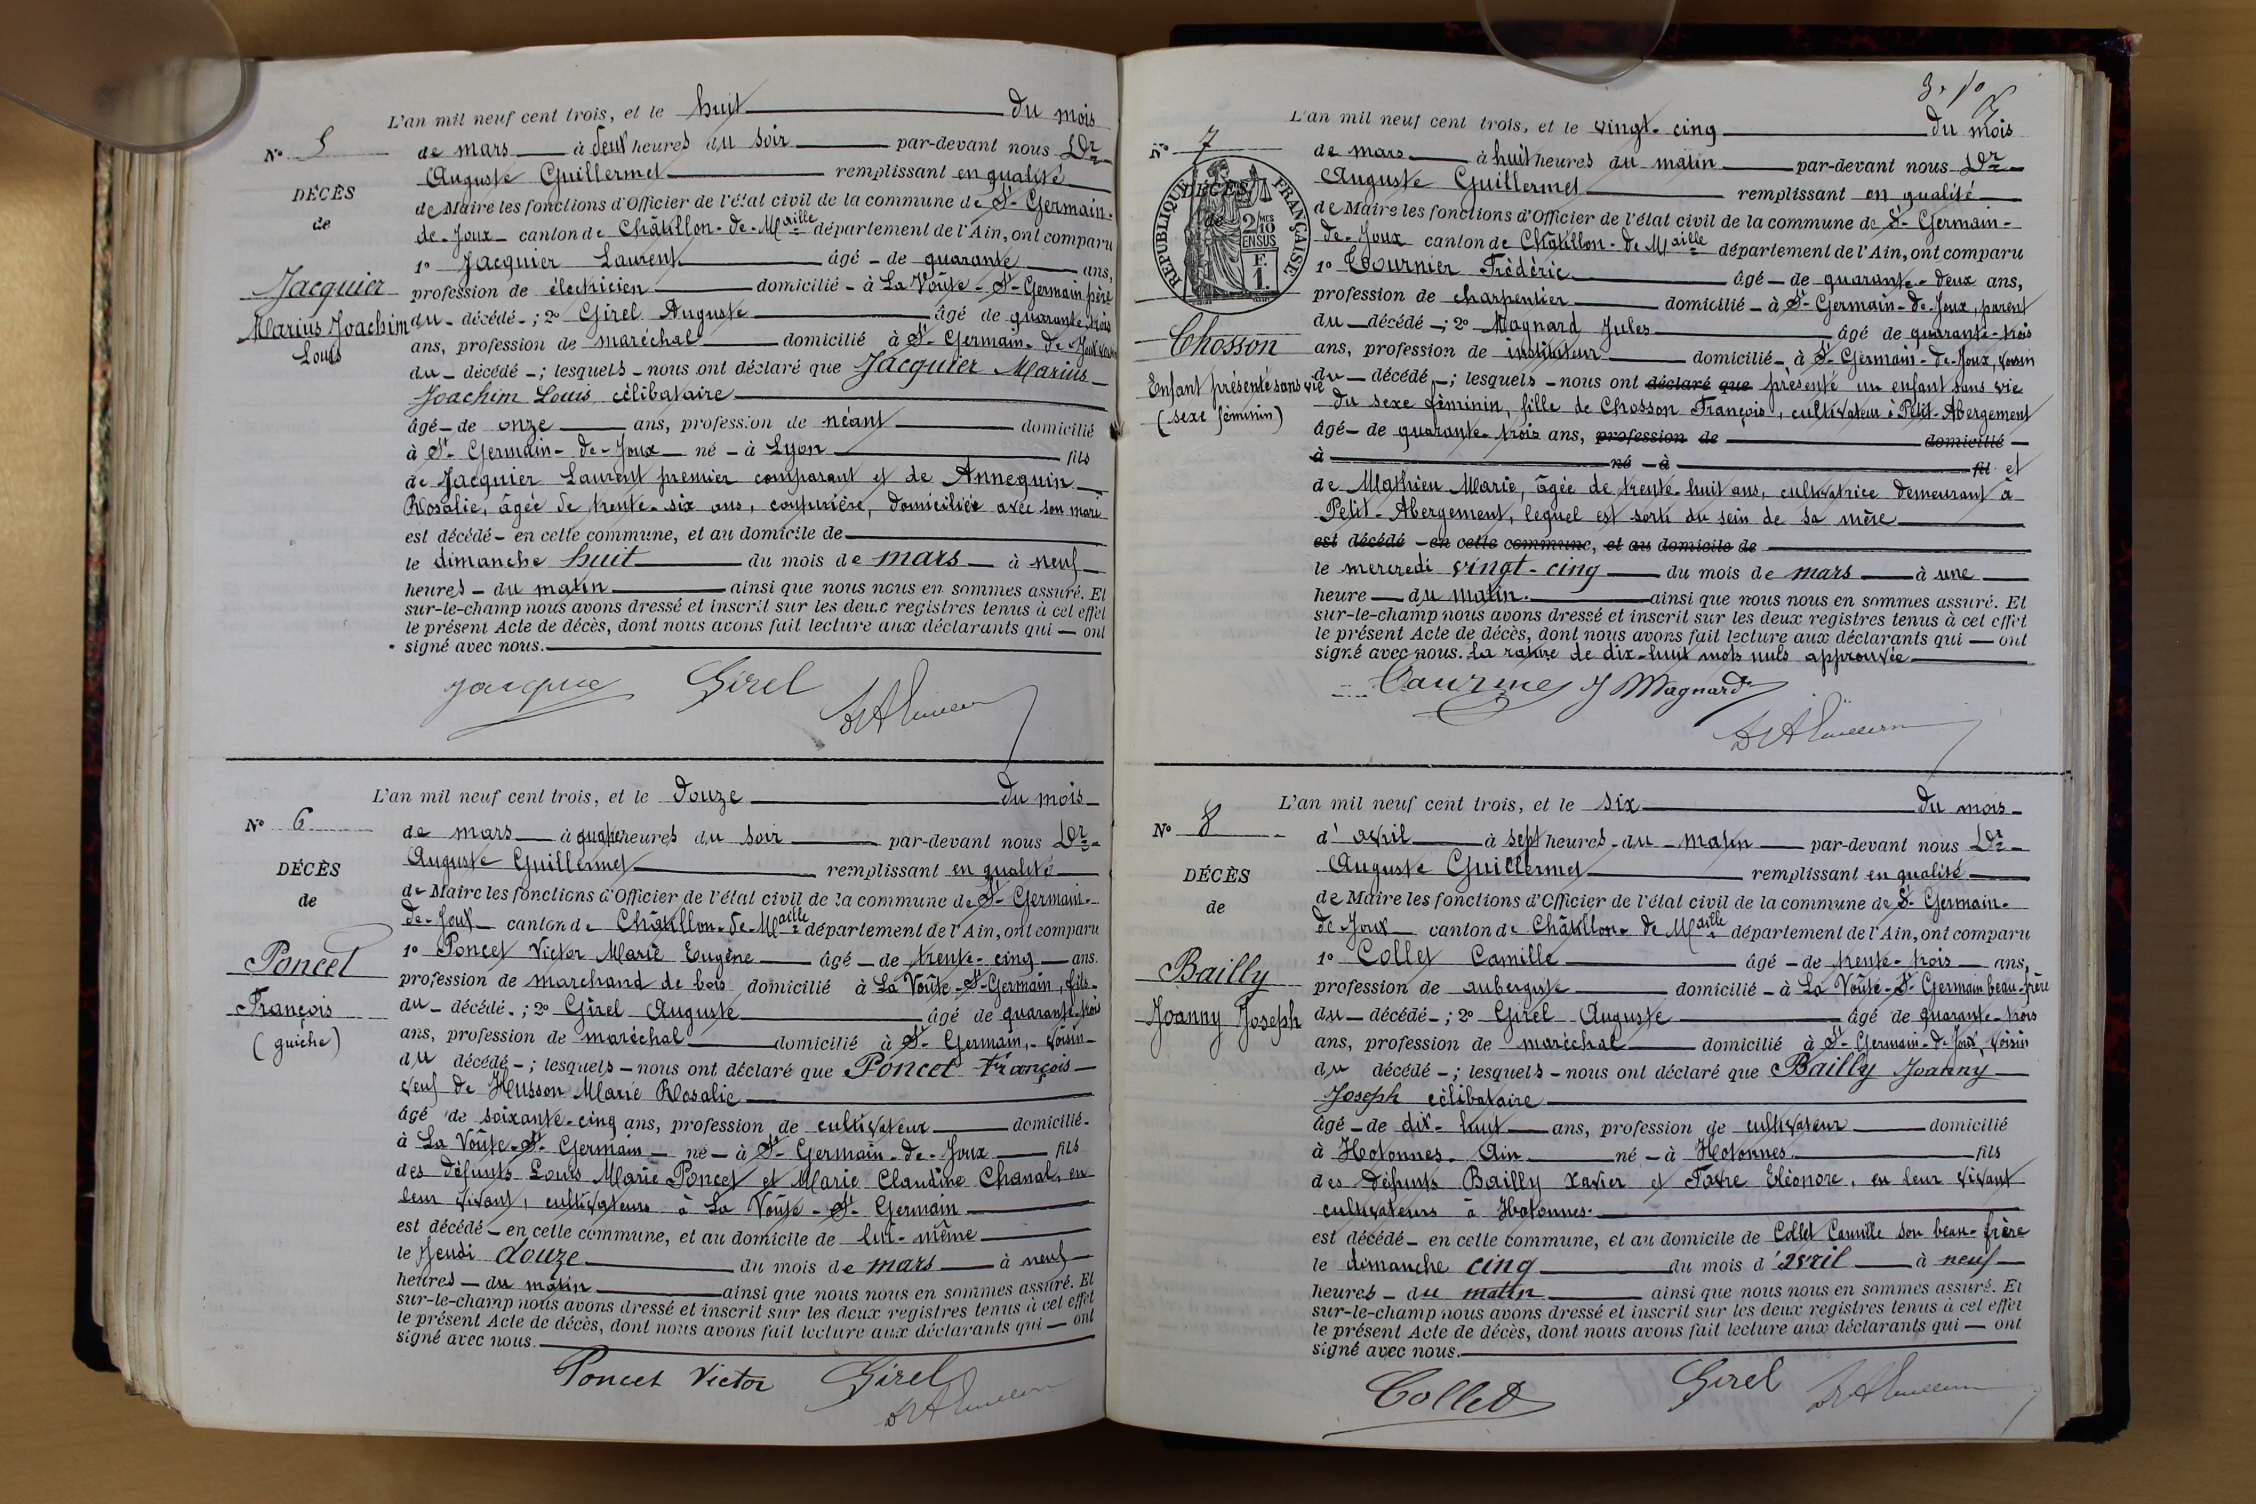 L'an mil neuf cent trois, et le huit du mois
N° 5
de mars à deux heures du soir par-devant nous Dr
Auguste Guillermet remplissant en qualité
DÉCÈS
de Maire les fonctions d'Officier de l'état civil de la commune de St Germain-
de
de-Joux canton de Châtillon-de-Maille département de l'Ain, ont comparu
1° Jacquier Laurent âgé de quarante ans,
Jacquier
profession de électricien domicilié à La Voûte-St-Germain père
Marius Joachim
du décédé; 2° Girel Auguste âgé de quarante-trois
Louis
ans, profession de maréchal domicilié à St-Germain-de-Joux voisin
du décédé; lesquels nous ont déclaré que Jacquier Marius
Joachim Louis célibataire
âgé de onze ans, profession de néant domicilié
à St Germain-de-Joux né à Lyon fils
de Jacquier Laurent premier comparant et de Annequin
Rosalie, âgée de trente-six ans, couturière, domiciliée avec son mari
est décédé en cette commune, et au domicile de
le dimanche huit du mois de mars à neuf
heures du matin ainsi que nous nous en sommes assuré. Et
sur-le-champ nous avons dressé et inscrit sur les deux registres tenus à cet effet
le présent Acte de décès, dont nous avons fait lecture aux déclarants qui ont
signé avec nous.
Girel
L'an mil neuf cent trois, et le douze du mois
N° 6
de mars à quatre heures du soir par-devant nous Dr
Auguste Guillermet remplissant en qualité
DÉCÈS
de Maire les fonctions d'Officier de l'état civil de la commune de St-Germain-
de
de-Joux canton de Châtillon-de-Maille département de l'Ain, ont comparu
1° Poncet Victor Marie Eugène âgé de trente-cinq ans.
Poncet
profession de marchand de bois domicilié à La Voûte-St-Germain, fils
François
du décédé; 2° Girel Auguste âgé de quarante-trois
(guiche)
ans, profession de maréchal domicilié à St-Germain, voisin
du décédé; lesquels nous ont déclaré que Poncet François
veuf de Husson Marie Rosalie
âgé de soixante-cinq ans, profession de cultivateur domicilié
à La Voûte-St-Germain né à St-Germain-de-Joux fils
des défunts Louis Marie Poncet et Marie Claudine Chanal, en
leur vivant, cultivateurs à La Voûte-St-Germain
est décédé en cette commune, et au domicile de lui-même
le Jeudi douze du mois de mars à neuf
heures du matin ainsi que nous nous en sommes assuré. Et
sur-le-champ nous avons dressé et inscrit sur les deux registres tenus à cet effet
le présent Acte de décès, dont nous avons fait lecture aux déclarants qui ont
signé avec nous.
Poncet Victor Girel
L'an mil neuf cent trois, et le vingt-cinq du mois
N° 7
de mars à huit heures du matin par-devant nous Dr
Auguste Guillermet remplissant en qualité
DÉCÈS
de
RÉPUBLIQUE FRANÇAISE
2/10 ENSUS
F. 1.
de Maire les fonctions d'Officier de l'état civil de la commune de St-Germain-
de-Joux canton de Châtillon-de-Maille département de l'Ain, ont comparu
1° Tournier Frédéric âgé de quarante-deux ans,
profession de charpentier domicilié à St-Germain-de-Joux, parent
du décédé; 2° Magnard Jules âgé de quarante-trois
Chosson
ans, profession de instituteur domicilié à St-Germain-de-Joux, voisin
Enfant présenté sans vie
(sexe féminin)
du décédé; lesquels nous ont déclaré que présenté un enfant sans vie
du sexe féminin, fille de Chosson François, cultivateur à Petit-Abergement
âgé de quarante-trois ans, profession de domicilié
à né à fil et
de Mathieu Marie, âgée de trente-huit ans, cultivatrice demeurant à
Petit-Abergement, lequel est sorti du sein de sa mère
est décédé en cette commune, et au domicile de
le mercredi vingt-cinq du mois de mars à une
heure du matin. ainsi que nous nous en sommes assuré. Et
sur-le-champ nous avons dressé et inscrit sur les deux registres tenus à cet effet
le présent Acte de décès, dont nous avons fait lecture aux déclarants qui ont
signé avec nous. La rature de dix-huit mots nuls approuvée
J Magnard
L'an mil neuf cent trois, et le six du mois
N° 8
d'avril à sept heures du matin par-devant nous Dr
Auguste Guillermet remplissant en qualité
DÉCÈS
de Maire les fonctions d'Officier de l'état civil de la commune de St-Germain-
de
de Joux canton de Châtillon-de Maille département de l'Ain, ont comparu
1° Collet Camille âgé de trente-trois ans,
Bailly
profession de aubergiste domicilié à La Voûte-St-Germain beau-frère
Joanny Joseph
du décédé; 2° Girel Auguste âgé de quarante-trois
ans, profession de maréchal domicilié à St-Germain-de-Joux, voisin
du décédé; lesquels nous ont déclaré que Bailly Joanny
Joseph célibataire
âgé de dix-huit ans, profession de cultivateur domicilié
à Hotonnes Ain né à Hotonnes fils
des défunts Bailly Xavier et Favre Eléonore, en leur vivant
cultivateurs à Hotonnes.
est décédé en cette commune, et au domicile de Collet Camille son beau-frère
le dimanche cinq du mois d'avril à neuf
heures du matin ainsi que nous nous en sommes assuré. Et
sur-le-champ nous avons dressé et inscrit sur les deux registres tenus à cet effet
le présent Acte de décès, dont nous avons fait lecture aux déclarants qui ont
signé avec nous.
Collet Girel